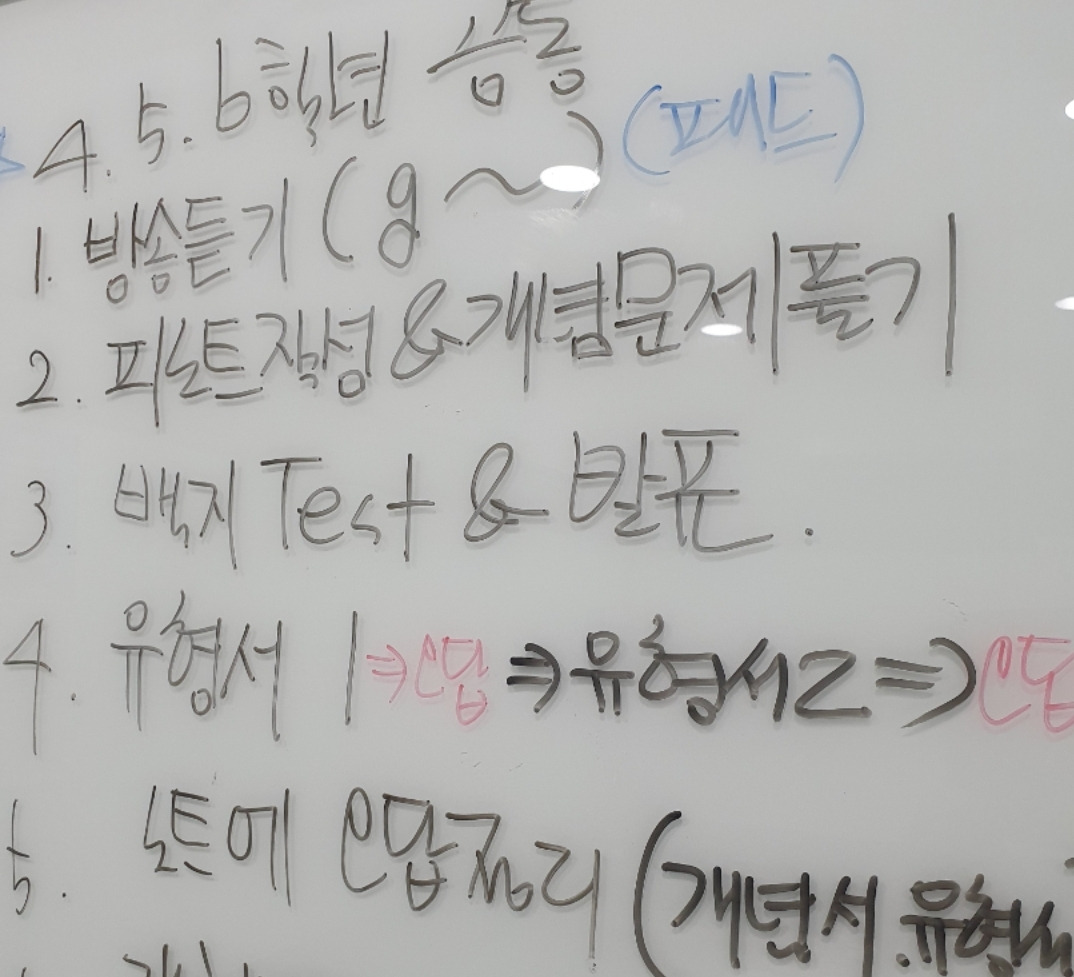 4. 5. 6학년 공통
(패드)
1. 방송듣기 (9~)
2. 피노트작성 & 개념문제풀기
3. 백지 Test & 발표.
4. 유형서 1 ⇒ 오답 ⇒ 유형서2 ⇒ 오답
5. 노트에 오답정리 (개념서. 유형서